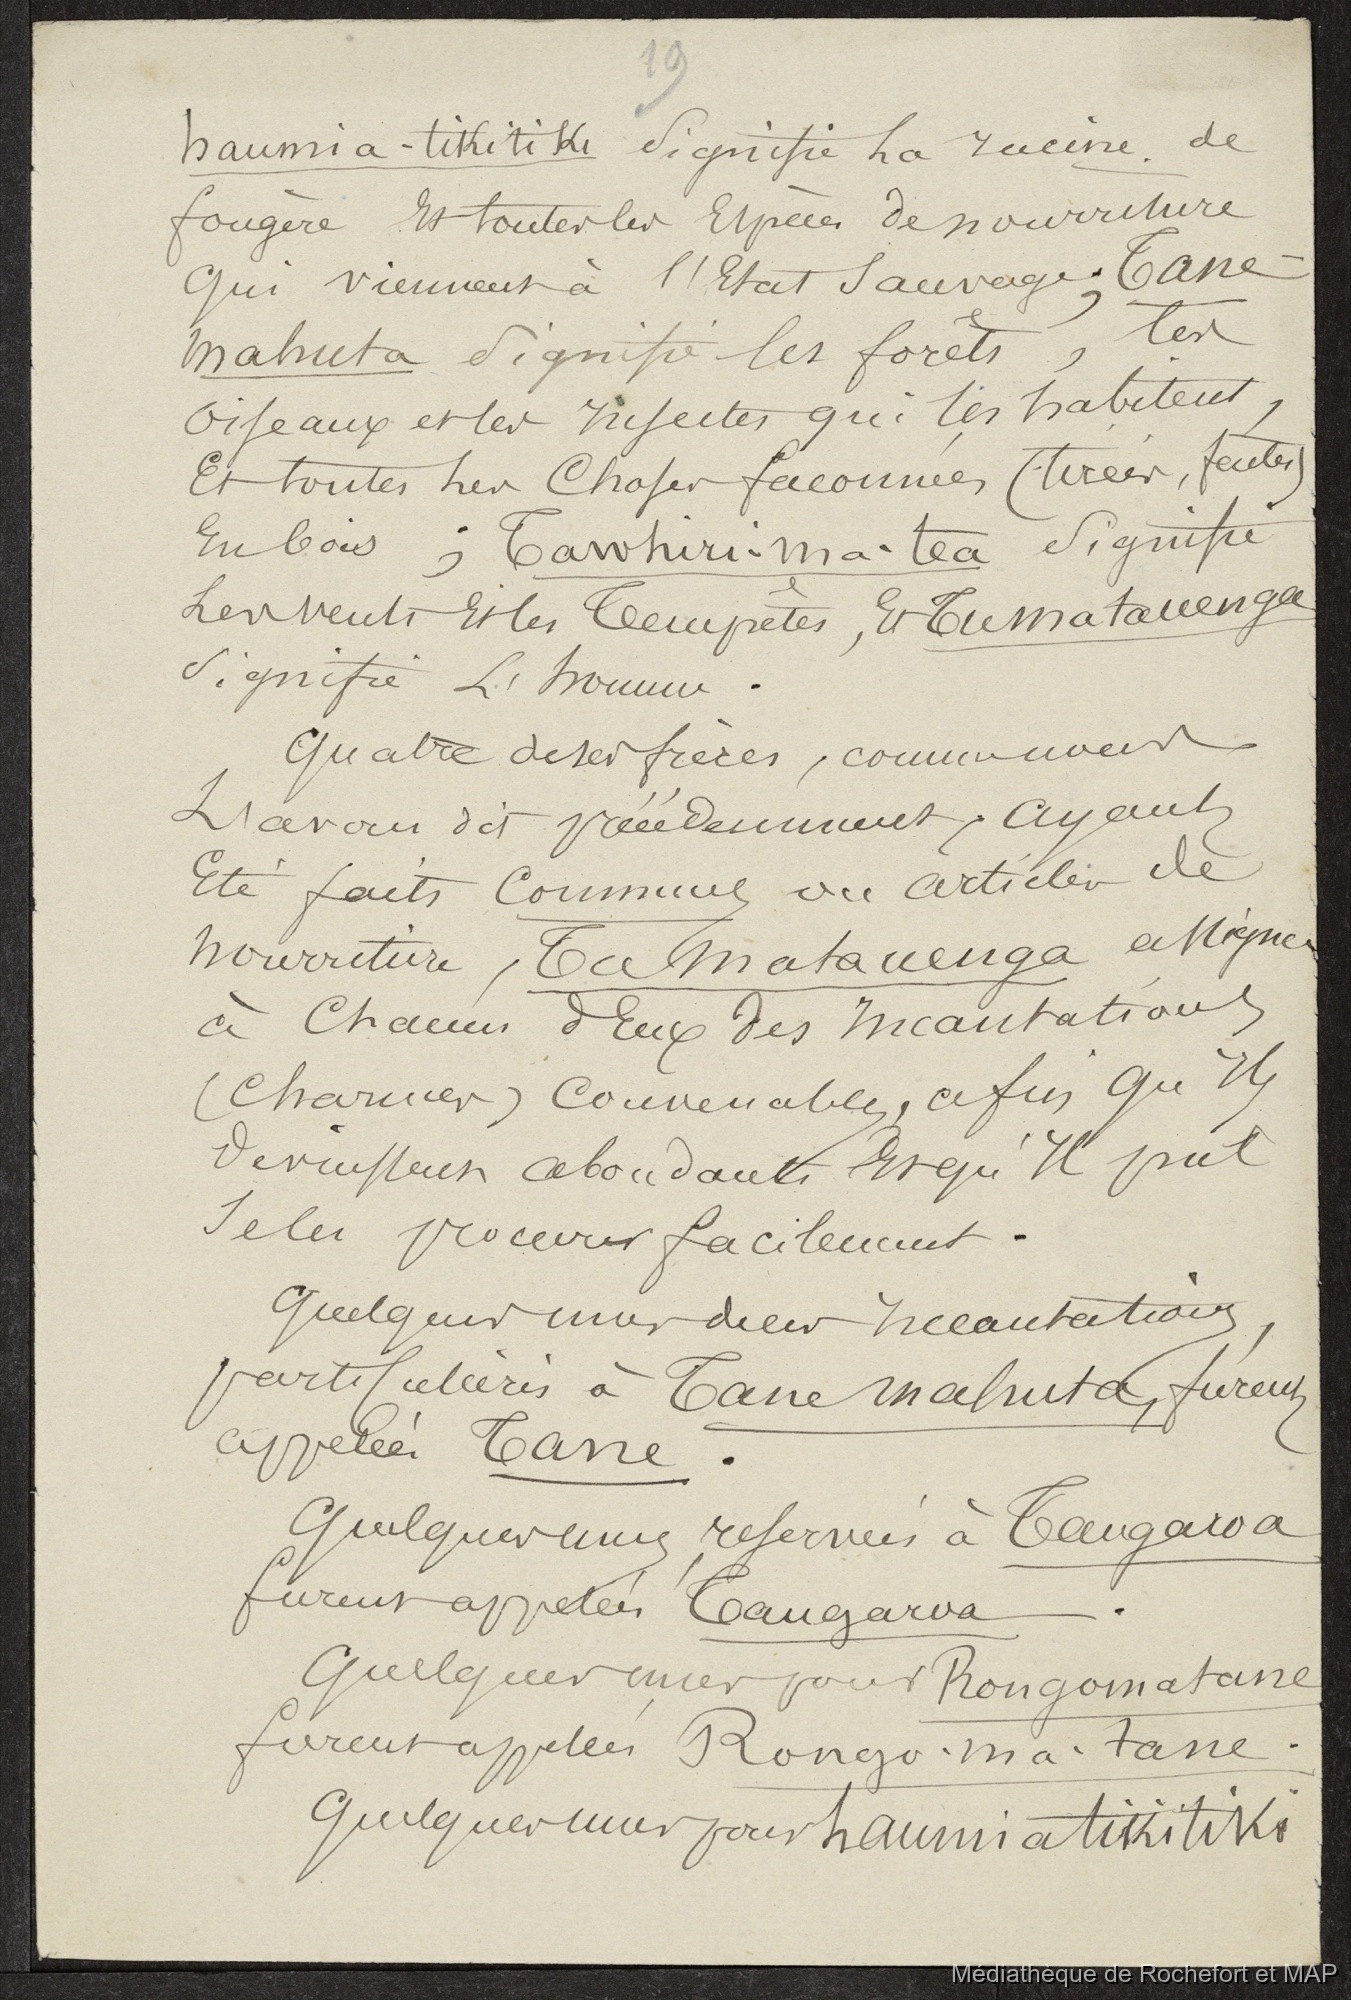 19
haumia-tikitiki signifie La racine de
fougère Et toutes les Espèces de nourriture
qui viennent à l'Etat Sauvage; Tane-
mahuta Signifie les forêts, les
oiseaux et les Insectes qui les habitent,
Et toutes Les Choses façonnées (tirées, faites)
En bois; Tawhiri-ma-tea Signifie
Les vents Et les Tempêtes, Et Tumatauenga
Signifie L'homme.
Quatre de ses frères, comme nous
L'avons dit précédemment, ayant
Eté faits Communs ou articles de
nourriture, Tu Matauenga assigna
à Chacun d'Eux des Incantations
(Charmes) Convenables, afin qu'Ils
devinssent abondants Et qu'Il put
Se les procurer facilement.
Quelques unes de ces Incantations,
particulières à Tane mahuta, furent
appelées Tane.
Quelques unes, reservées à Tangaroa
furent appelées Tangaroa.
Quelques unes pour Rongomatane
furent appelées Rongo-ma-tane.
Quelques unes pour haumiatikitiki
Médiathèque de Rochefort et MAP